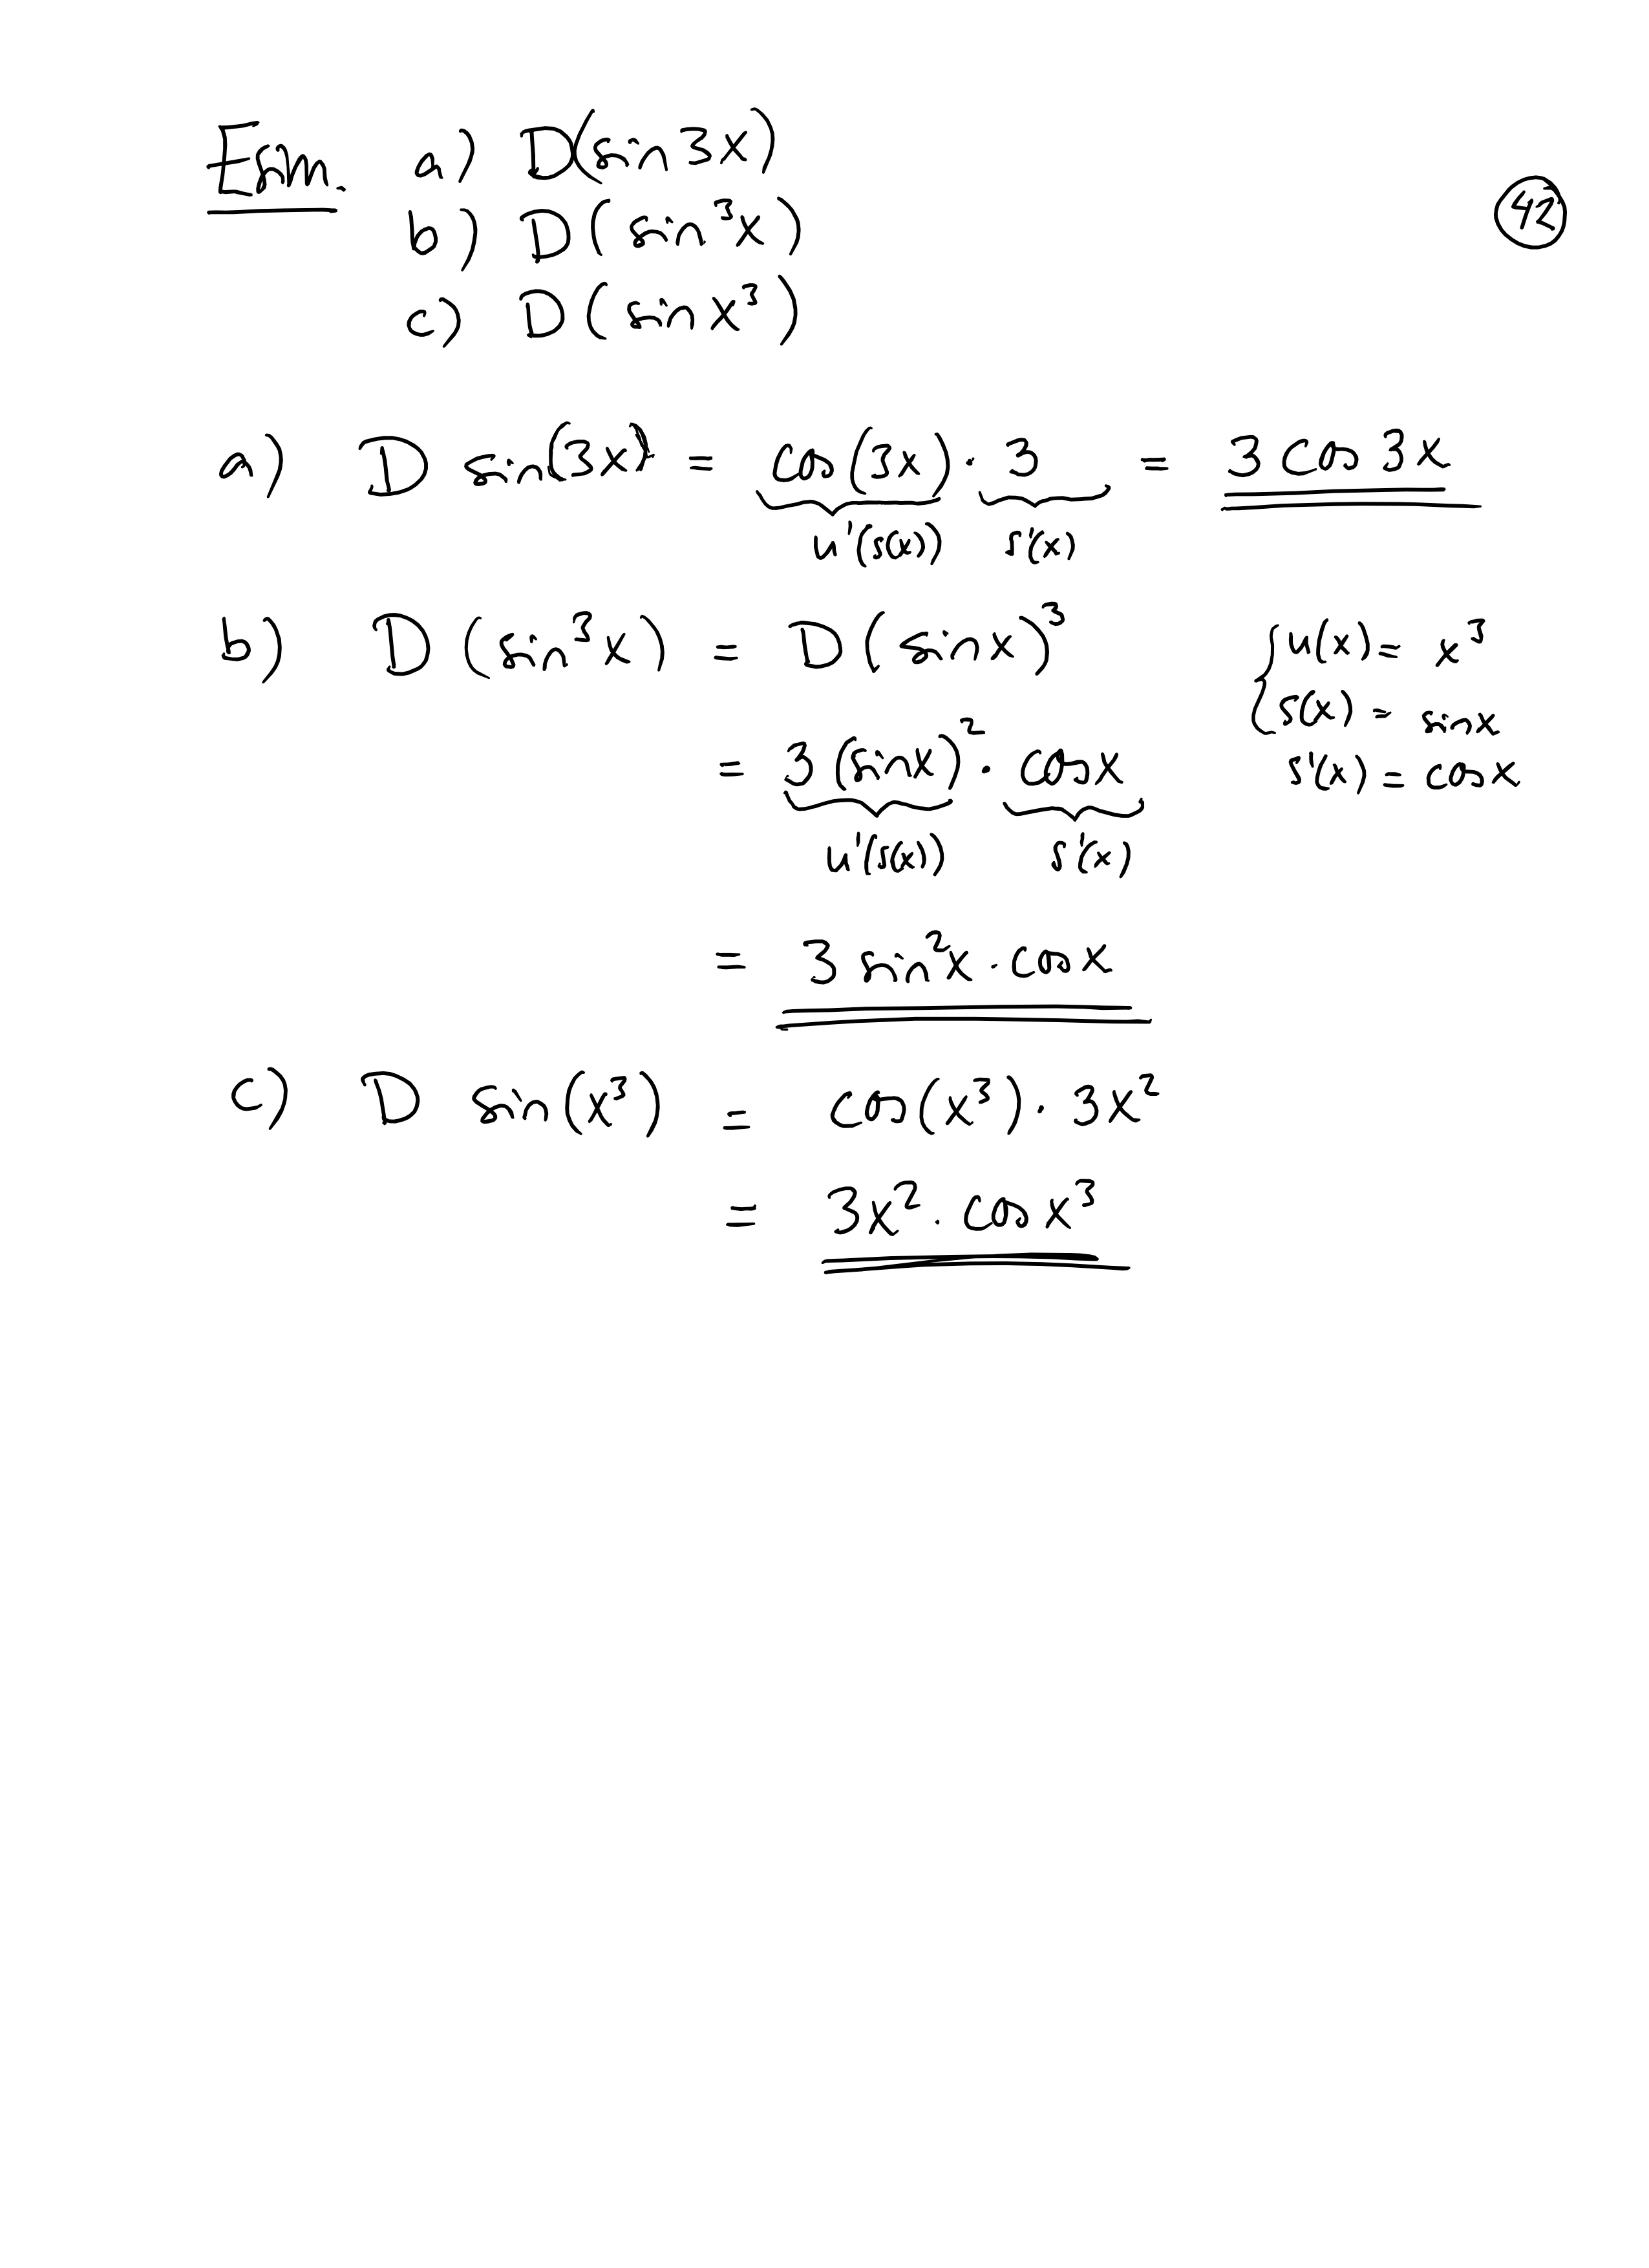 Esim. a) D(sin 3x)
42
b) D(sin³x)
c) D(sin x³)
a) D sin(3x) = cos(3x) · 3 = 3 cos 3x
u'(s(x)) s'(x)
b) D(sin³x) = D(sin x)³
u(x) = x³
s(x) = sin x
s'(x) = cos x
= 3(sin x)² · cos x
u'(s(x)) s'(x)
= 3 sin²x · cos x
c) D sin(x³) = cos(x³) · 3x²
= 3x² · cos x³